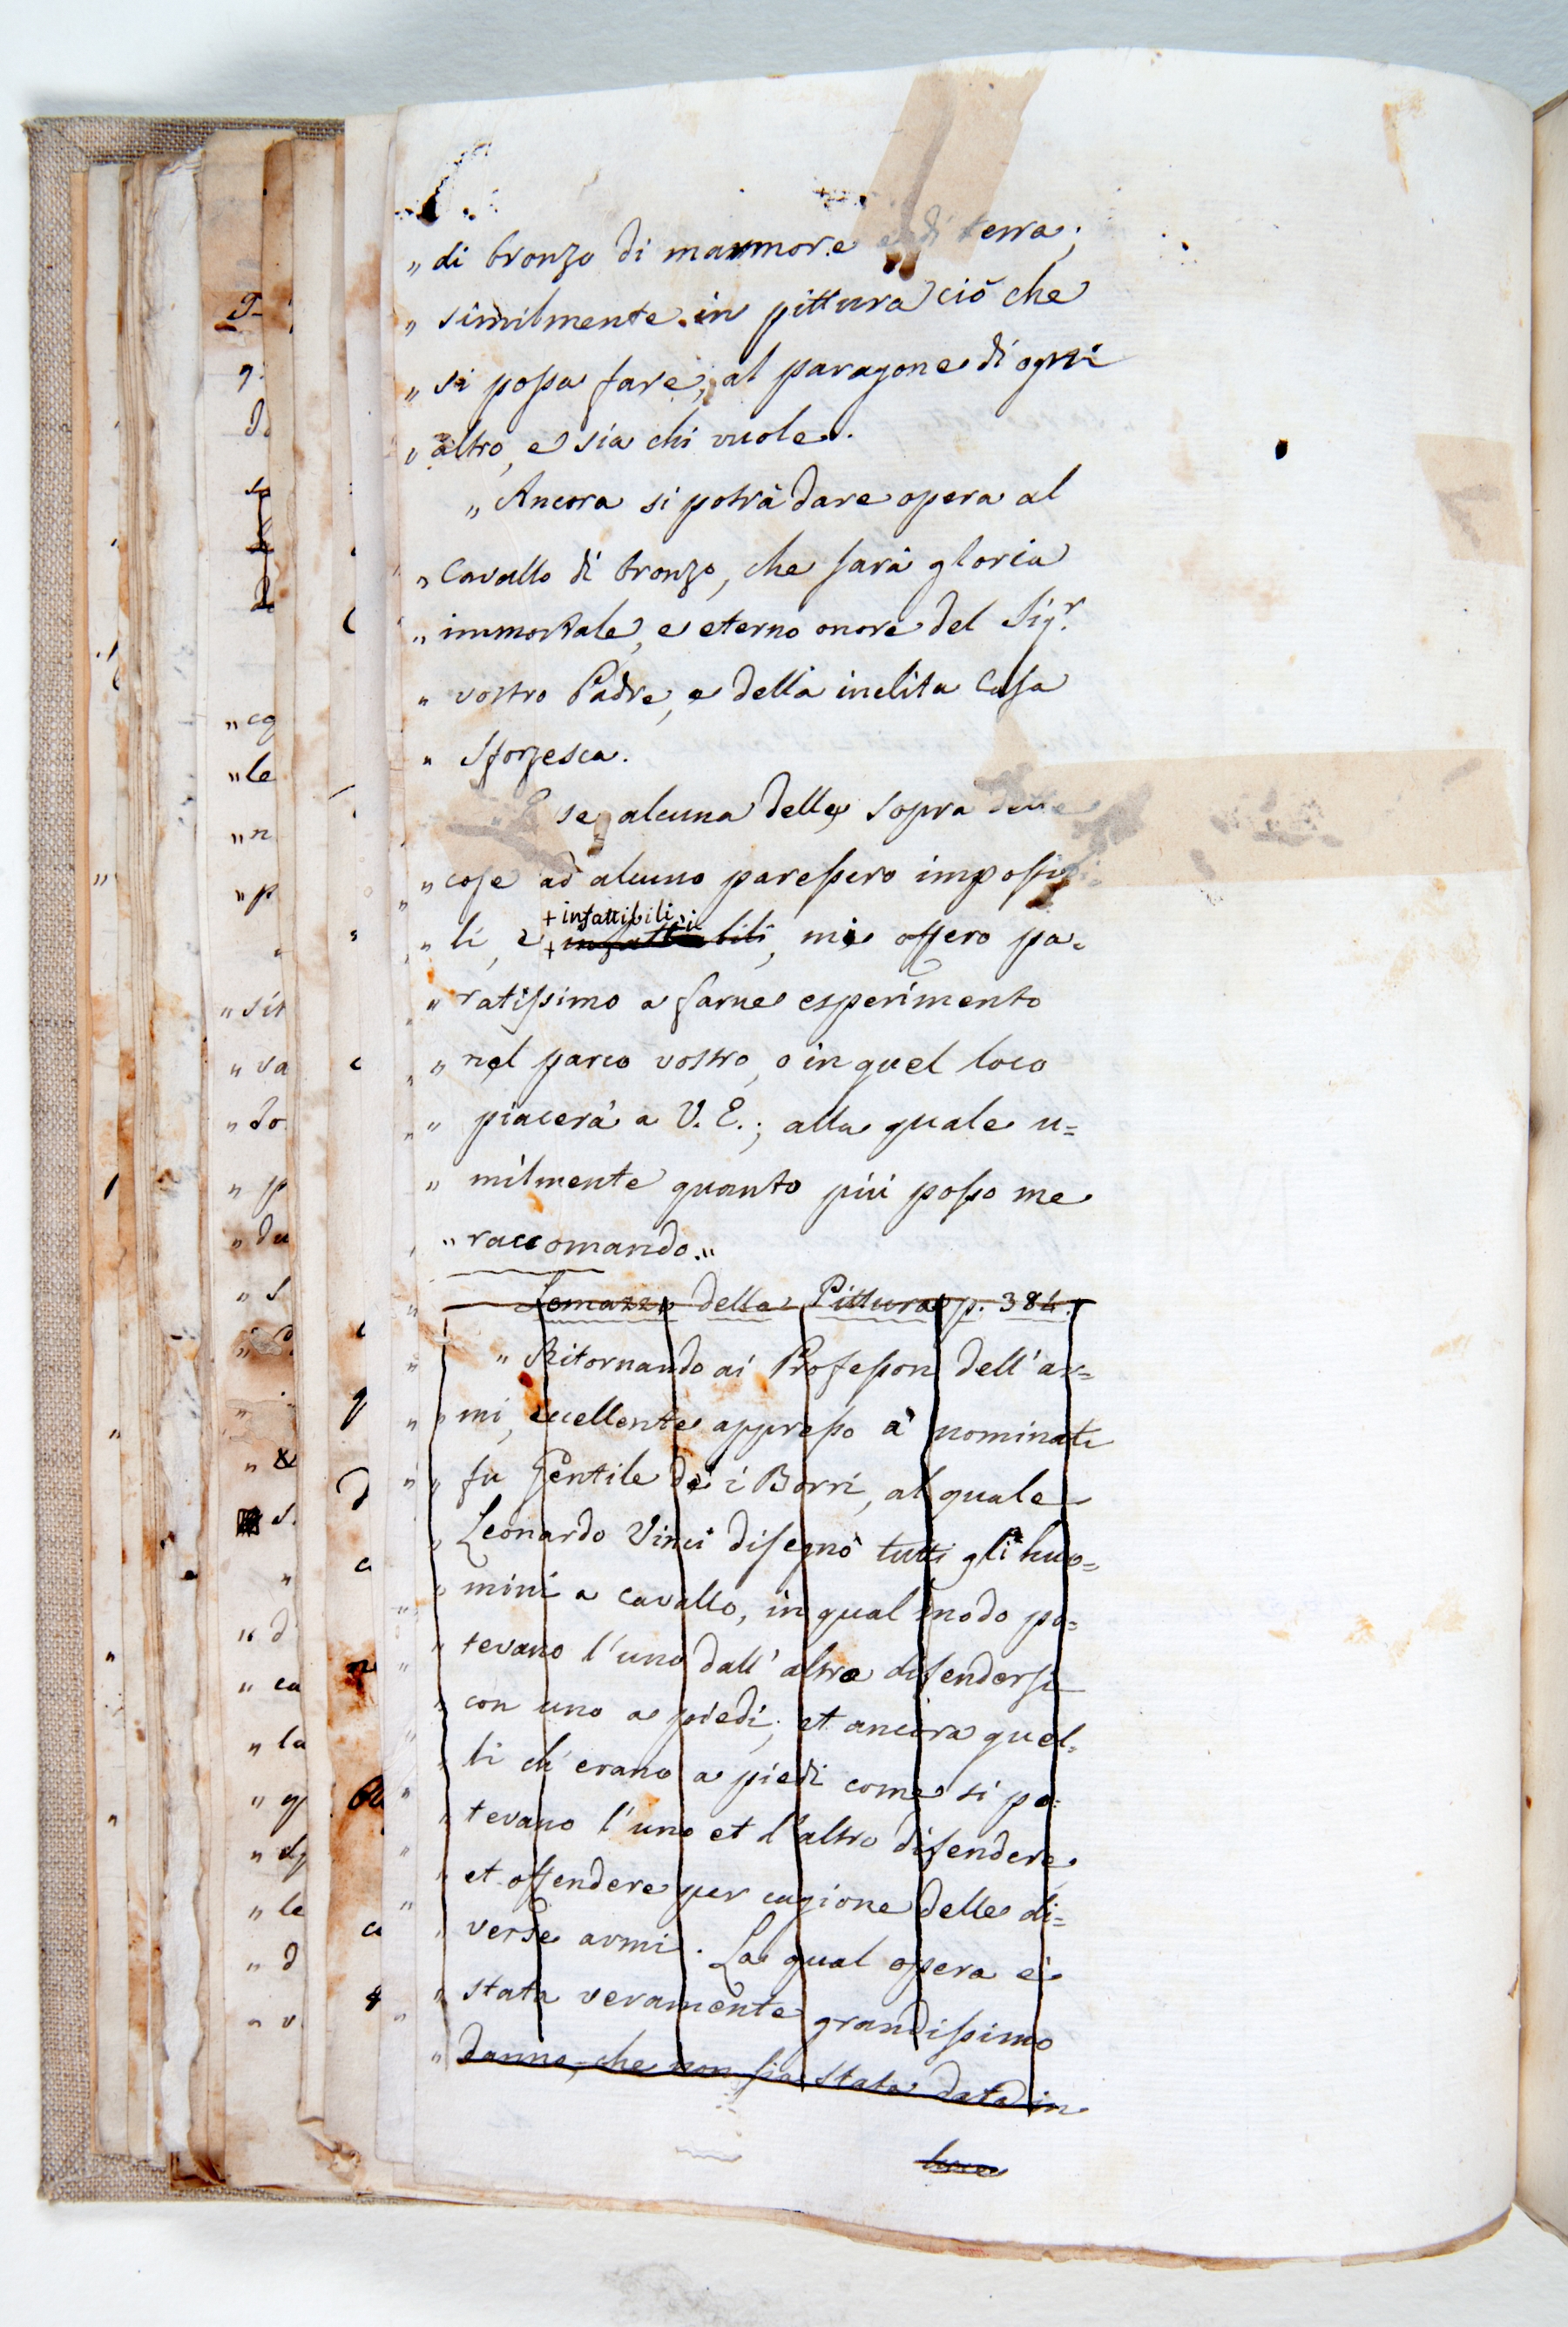 „ di bronzo di marmore e di terra;
„ similmente in pittura ciò che
„ si possa fare, al paragone di ogni
„ altro, e sia chi vuole.
„ Ancora si potrà dare opera al
„ Cavallo di bronzo, che sarà gloria
„ immortale, e eterno onore del Sig.r
„ vostro Padre, e della inclita Casa
„ Sforzesca.
„ E se alcuna delle sopra dette
„ cose ad alcuno paressero impossibi=
+ infattibili
„ li, e + infattibili, mi offero pa=
„ ratissimo a farne esperimento
„ nel parco vostro, o in quel loco
„ piacerà a V. E.; alla quale u=
„ milmente quanto più posso me
„ raccomando.„
Lomazzo della Pittura p. 384.
„ Ritornando ai Professori dell'ar=
„ mi, eccellente appresso a' nominati
„ fu Gentile de i Borri, al quale
„ Leonardo Vinci disegnò tutti gli huo=
„ mini a cavallo, in qual modo po=
„ tevano l'uno dall'altro difendersi
„ con uno a piedi; et ancora quel=
„ li ch'erano a piedi come si po=
„ tevano l'uno et l'altro difendere,
„ et offendere per cagione delle di=
„ verse armi. La qual opera è
„ stata veramente grandissimo
„ danno, che non sia stata data in
luce